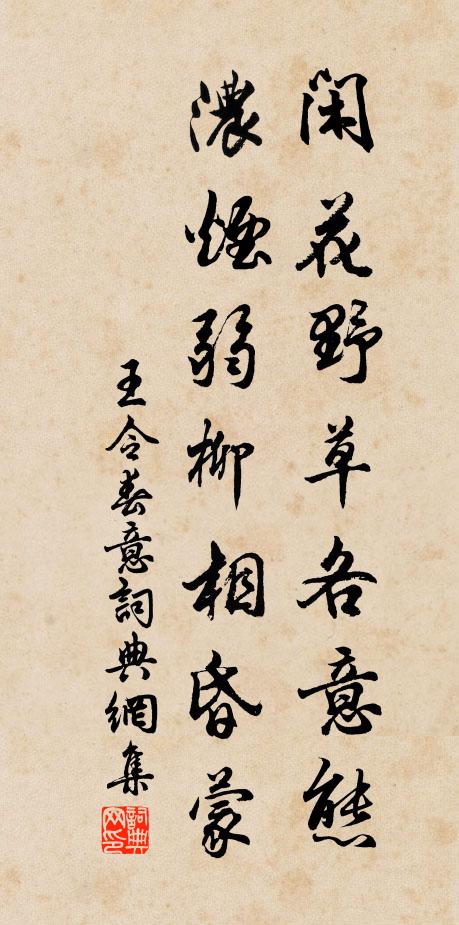 闲花野草各意態
濃煙弱柳相昏蒙
王令春意詞典網集
詞典网印